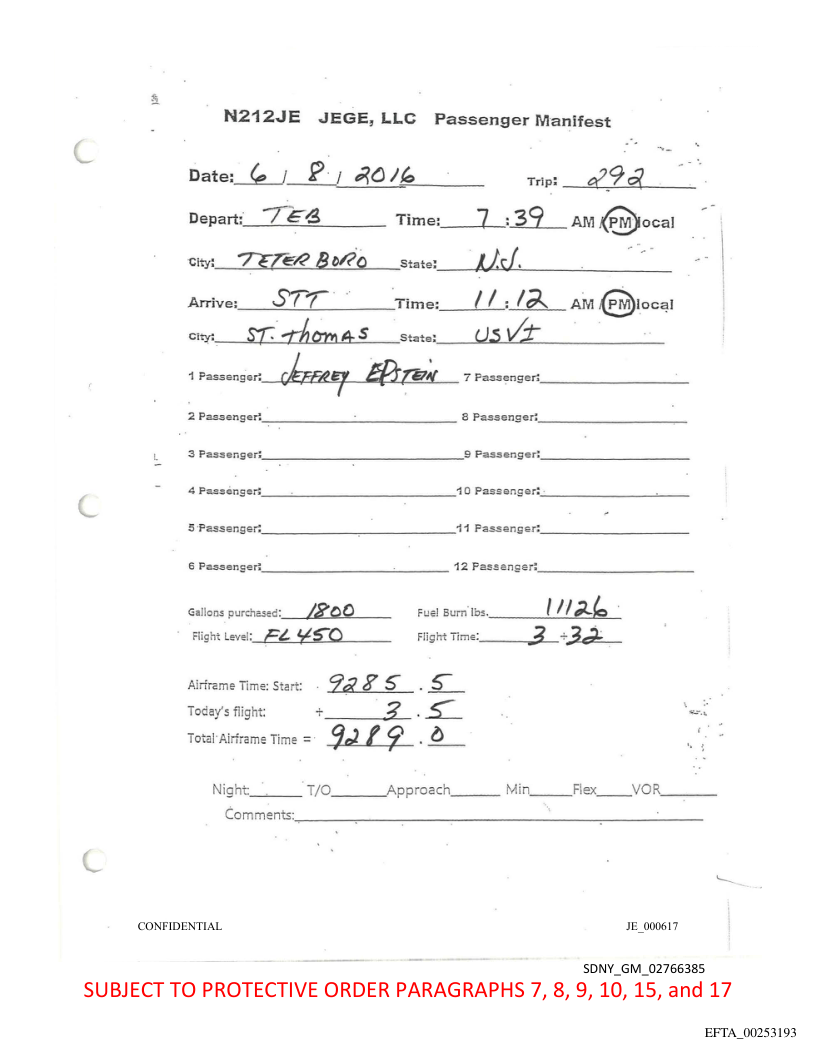 N212JE JEGE, LLC Passenger Manifest
Date: 6 / 8 / 2016 Trip: 292
Depart: TEB Time: 7 : 39 AM / PM local
City: TETERBORO State: N.J.
Arrive: STT Time: 11 : 12 AM / PM local
City: ST. THOMAS State: USVI
1 Passenger: JEFFREY EPSTEIN 7 Passenger:
2 Passenger: 8 Passenger:
3 Passenger: 9 Passenger:
4 Passenger: 10 Passenger:
5 Passenger: 11 Passenger:
6 Passenger: 12 Passenger:
Gallons purchased: 1800 Fuel Burn lbs. 11126
Flight Level: FL 450 Flight Time: 3 + 32
Airframe Time: Start: 9285 . 5
Today's flight: + 3 . 5
Total Airframe Time = 9289 . 0
Night: T/O Approach Min Flex VOR
Comments:
CONFIDENTIAL JE_000617
SDNY_GM_02766385
SUBJECT TO PROTECTIVE ORDER PARAGRAPHS 7, 8, 9, 10, 15, and 17
EFTA_00253193